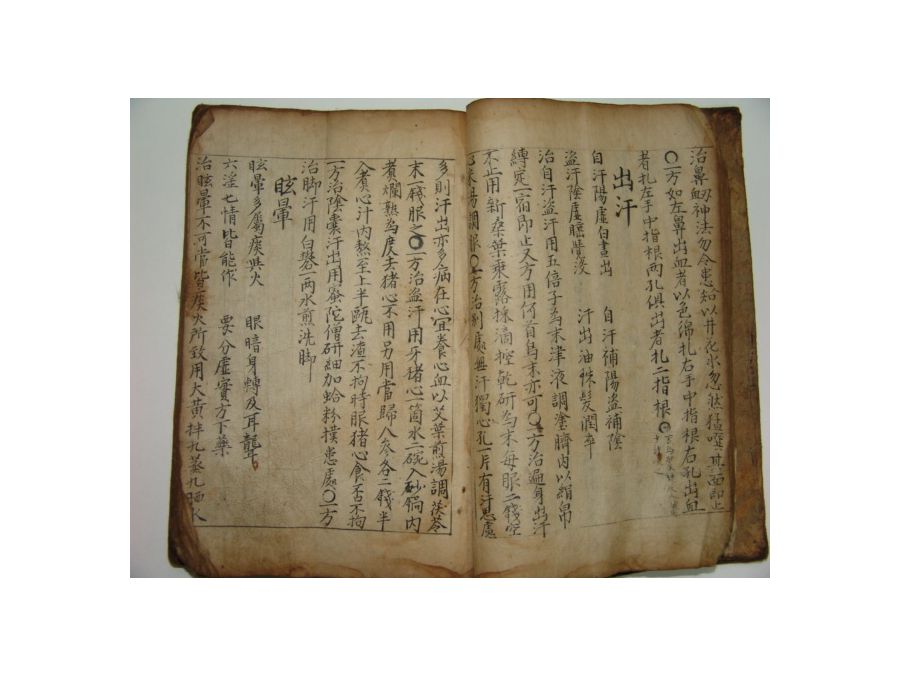 治鼻衄神法勿令患知以井花水忽然猛噀其面即止
〇一方如左鼻出血者以色綿扎右手中指根右孔出血
者扎左手中指根两孔俱出者扎二指根
出汗
自汗陽虛白晝出 自汗補陽盗補陰
盗汗陰虛睡時沒 汗出油珠髮潤卒
治自汗盗汗用五倍子为末津液調塗臍内以絹帛
縛定一宿即止又方用何首烏末亦可〇一方治遍身出汗
不止用新桑葉乘露採滴控乾研为末每服二錢空
心米湯調服〇一方治别處無汗獨心孔一片有汗思慮
多則汗出亦多病在心宜養心血以艾葉煎湯調茯苓
末一錢服之〇一方治盗汗用牙猪心一箇水二碗入砂鍋内
煮爛熟為度去猪心不用另用當歸人參各二錢半
入煮心汁内熬至上半甌去渣不拘時服猪心食否不拘
一方治陰囊汗出用蜜陀僧研細加蛤粉撲患處〇一方
治脚汗用白礬一两水煎洗脚
眩暈
眩暈多屬痰與火 眼暗身轉及耳聾
六淫七情皆能作 要分虛實方下藥
治眩暈不可當皆痰火所致用大黄拌九蒸九晒水